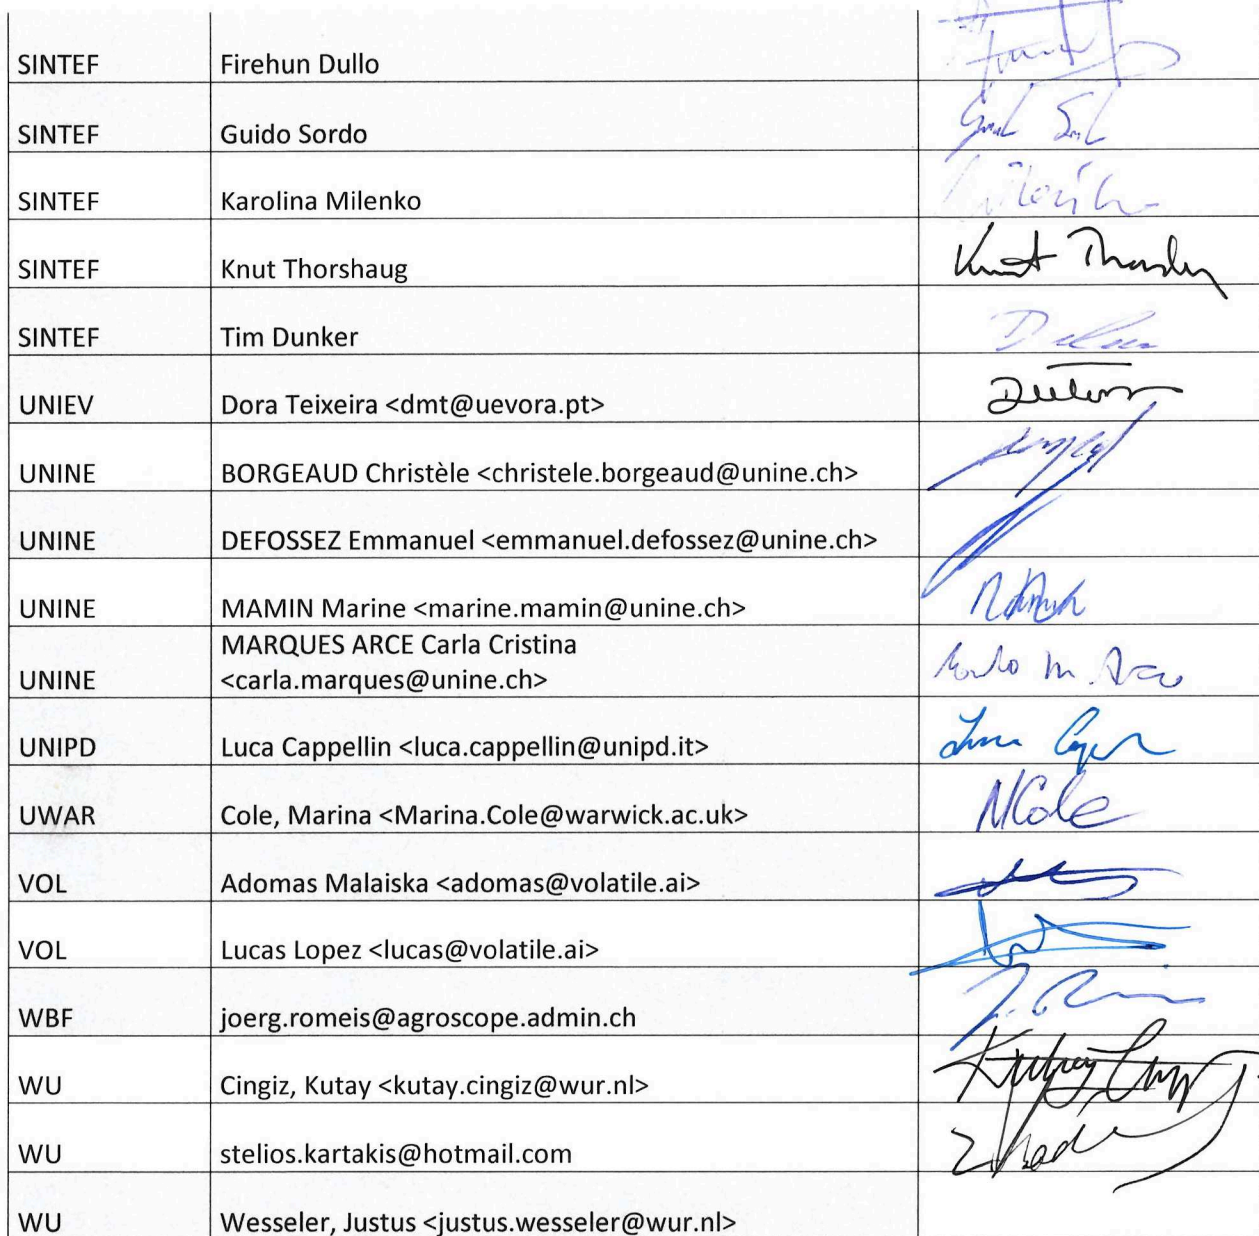 SINTEF Firehun Dullo
SINTEF Guido Sordo
SINTEF Karolina Milenko
SINTEF Knut Thorshaug Knut
SINTEF Tim Dunker
UNIEV Dora Teixeira <dmt@uevora.pt>
UNINE BORGEAUD Christèle <christele.borgeaud@unine.ch>
UNINE DEFOSSEZ Emmanuel <emmanuel.defossez@unine.ch>
UNINE MAMIN Marine <marine.mamin@unine.ch>
MARQUES ARCE Carla Cristina
UNINE <carla.marques@unine.ch>
UNIPD Luca Cappellin <luca.cappellin@unipd.it>
UWAR Cole, Marina <Marina.Cole@warwick.ac.uk> MCole
VOL Adomas Malaiska <adomas@volatile.ai>
VOL Lucas Lopez <lucas@volatile.ai>
WBF joerg.romeis@agroscope.admin.ch
WU Cingiz, Kutay <kutay.cingiz@wur.nl>
WU stelios.kartakis@hotmail.com
WU Wesseler, Justus <justus.wesseler@wur.nl>